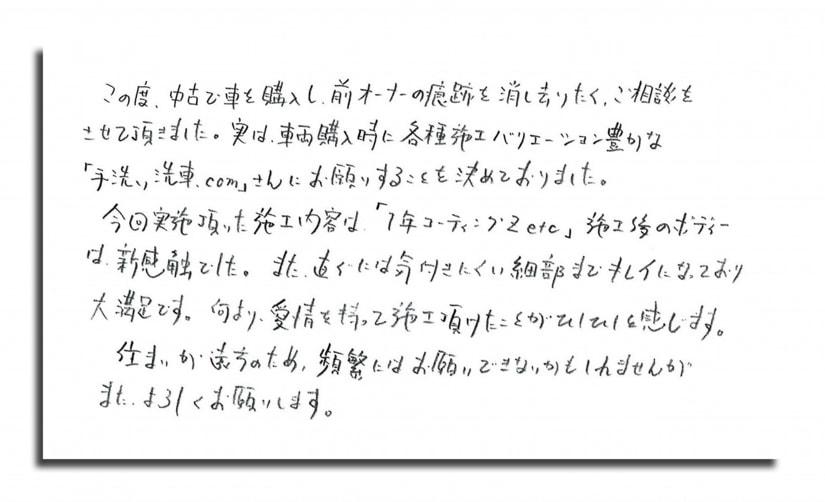 この度、中古で車を購入し、前オーナーの痕跡を消し去りたく、ご相談を
させて頂きました。実は、車両購入時に各種施工バリエーション豊かな
「手洗い洗車.com」さんにお願いすることを決めておりました。
今回実施頂いた施工内容は、「1年コーティングZ etc」施工後のボディー
は、新感触でした。また、直ぐには気付きにくい細部までキレイになっており
大満足です。何より、愛情を持って施工頂けたことがひしひしと感じます。
住まいが遠方のため、頻繁にはお願いできないかもしれませんが
また、よろしくお願いします。